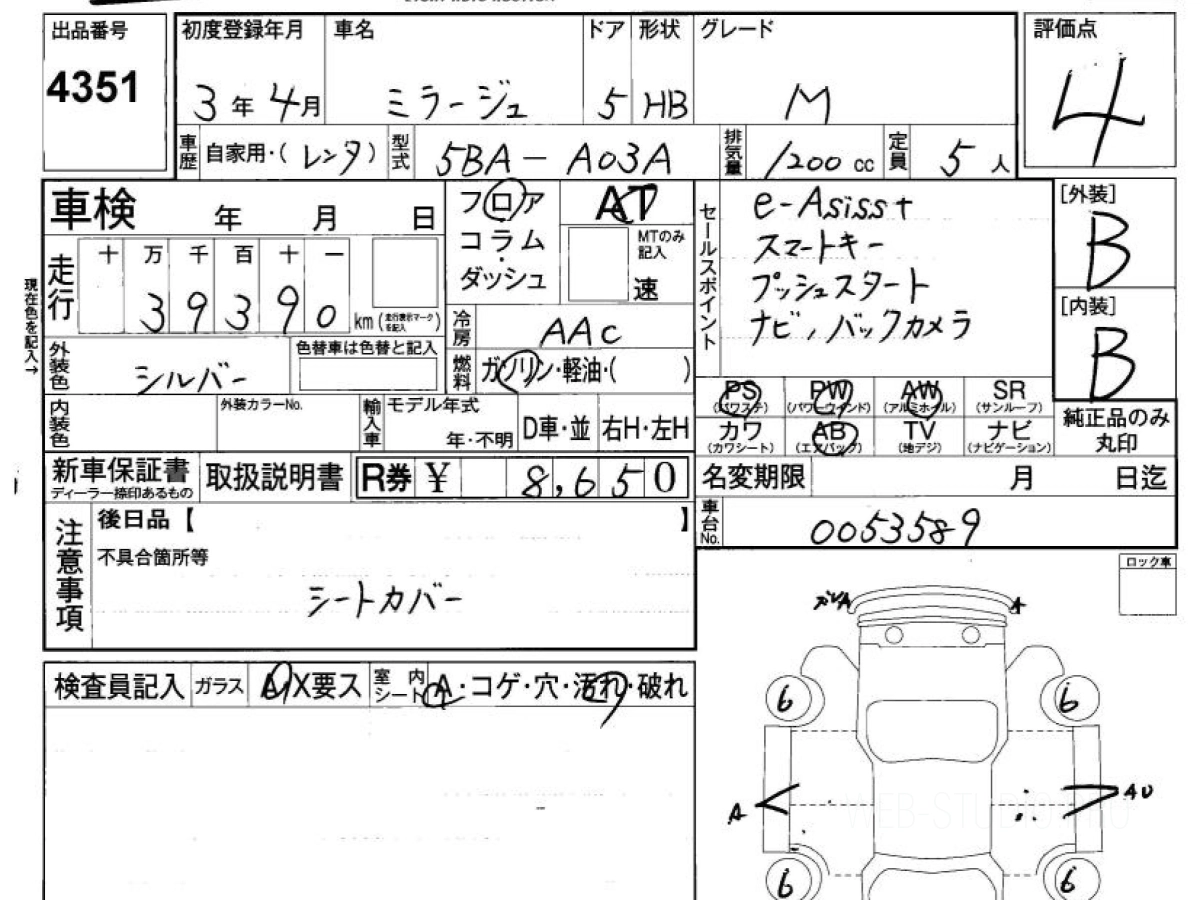 出品番号
4351
初度登録年月
3年4月
車名
ミラージュ
ドア
5
形状
HB
グレード
M
評価点
4
車歴
自家用・(レンタ)
型式
5BA-A03A
排気量
1200cc
定員
5人
車検 年 月 日
フロア
コラム
ダッシュ
AT
MTのみ記入
速
セールスポイント
e-Asisst
スマートキー
プッシュスタート
ナビ,バックカメラ
[外装]
B
[内装]
B
現在色を記入→
走行
十 万 千 百 十 一
39390 km(走行表示マークを記入)
冷房
AAC
外装色
シルバー
色替車は色替と記入
燃料
ガソリン・軽油・( )
内装色
外装カラーNo.
輸入車
モデル年式
年・不明
D車・並
右H・左H
PS (パワステ)
PW (パワーウインド)
AW (アルミホイル)
SR (サンルーフ)
カワ (カワシート)
AB (エアバック)
TV (地デジ)
ナビ (ナビゲーション)
純正品のみ
丸印
新車保証書
ディーラー捺印あるもの
取扱説明書
R券 ¥ 8,650
名変期限 月 日迄
車台No.
0053589
注意事項
後日品【 】
不具合箇所等
シートカバー
ロック車
検査員記入
ガラス
A X要ス
室内シート
A・コゲ・穴・汚れ・破れ
A
6
6
A
AU
6
6
WEB-STUDIO.PRO